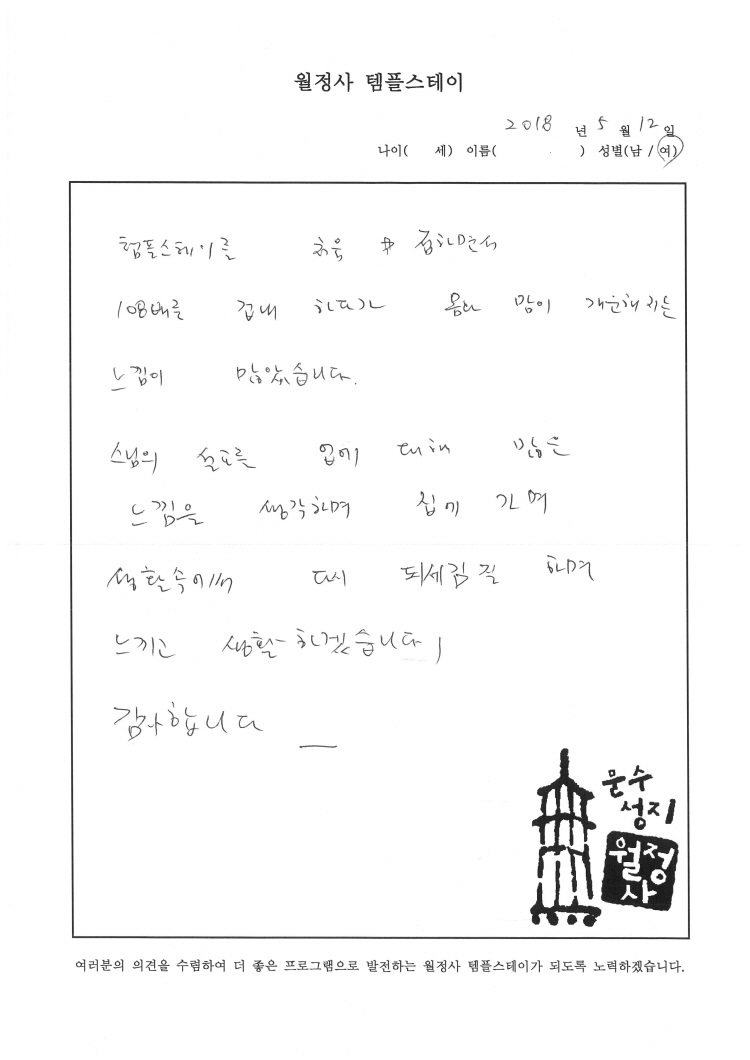 월정사 템플스테이
2018 년 5 월 12 일
나이( 세) 이름( ) 성별(남 / 여)
템플스테이를 처음 접하면서
108배를 끝내 하다가 몸과 맘이 개운해지는
느낌이 많았습니다.
스님의 업에 대해 많은
느낌을 생각하며 집에 가며
생활속에써 다시 되세김질 하며
느끼고 생활하겠습니다
감사합니다
문수
성지
월정
사
여러분의 의견을 수렴하여 더 좋은 프로그램으로 발전하는 월정사 템플스테이가 되도록 노력하겠습니다.